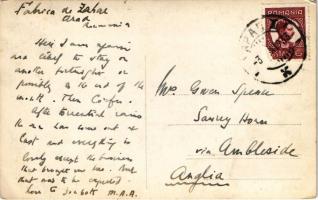 Fabrica de Zahar
Arad
Rumania
Here I am again
and likely to stay on
another fortnight or
possibly to the end of the
month. Then Corfu.
After torrential rains
the sun has come out at
last and everything is
lovely except the business
that brought me here. But
that was to be expected.
Love to you both M.A.A.
ROMANIA
ARAD
Mrs Gwen Spence
Sawrey House
via Ambleside
Anglia